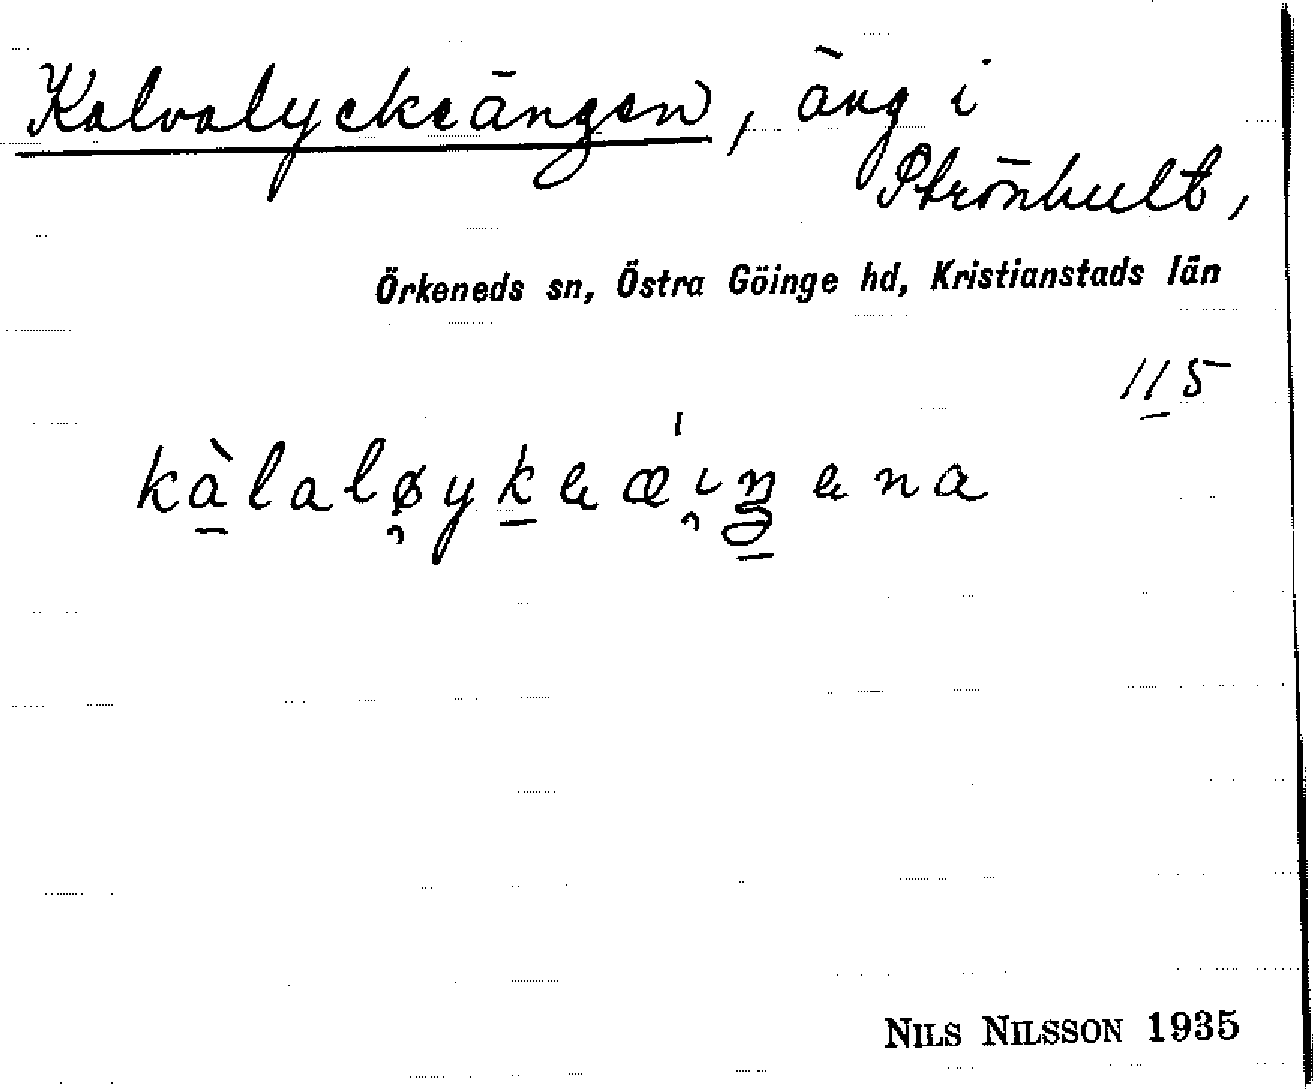 Kalvalyckeängen, äng i
Strönhult,
Örkeneds sn, Östra Göinge hd, Kristianstads län
115
kàlaløykeæiŋena
NILS NILSSON 1935